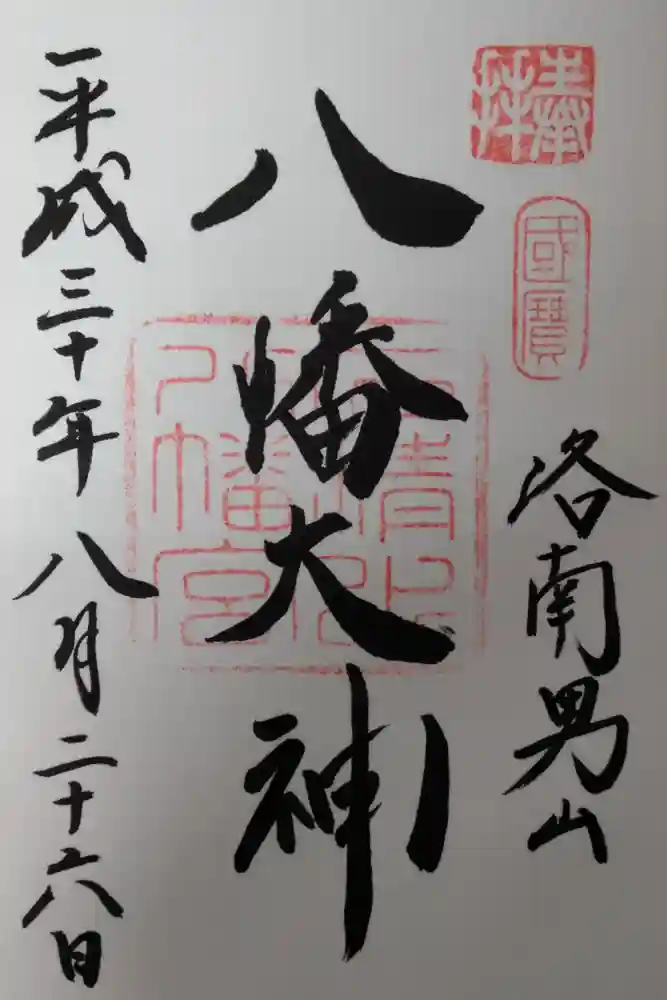 奉拝
國寶
洛南男山
八幡大神
石清水
八幡宮
平成三十年八月二十六日